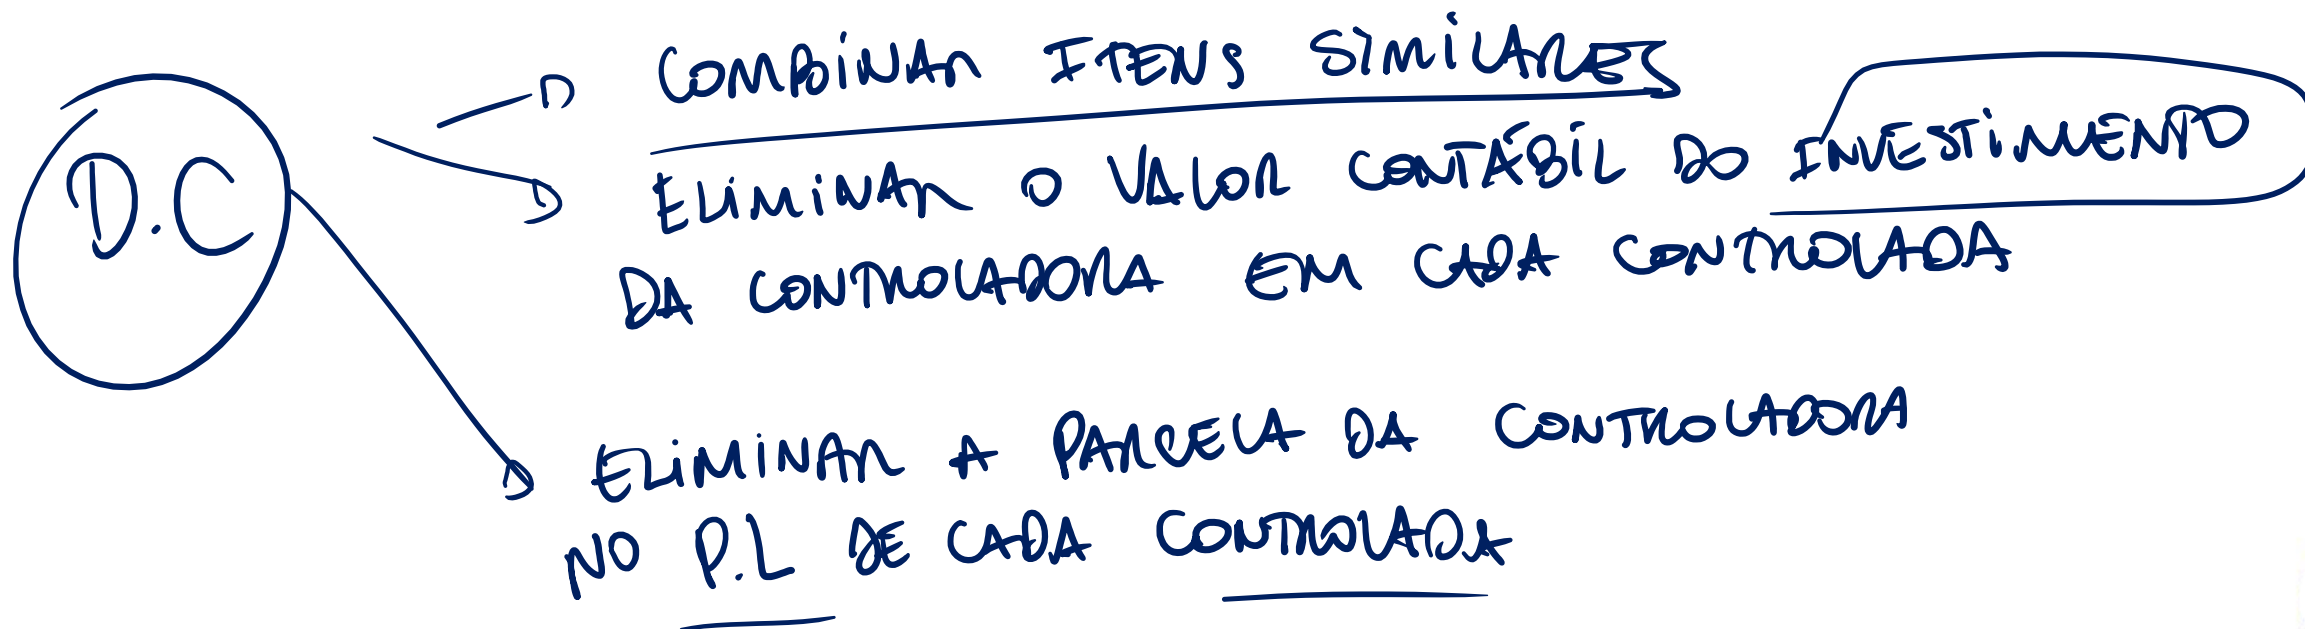 D.C
COMBINAR ITENS SIMILARES
ELIMINAR O VALOR CONTÁBIL DO INVESTIMENTO
DA CONTROLADORA EM CADA CONTROLADA
ELIMINAR A PARCELA DA CONTROLADORA
NO P.L DE CADA CONTROLADA